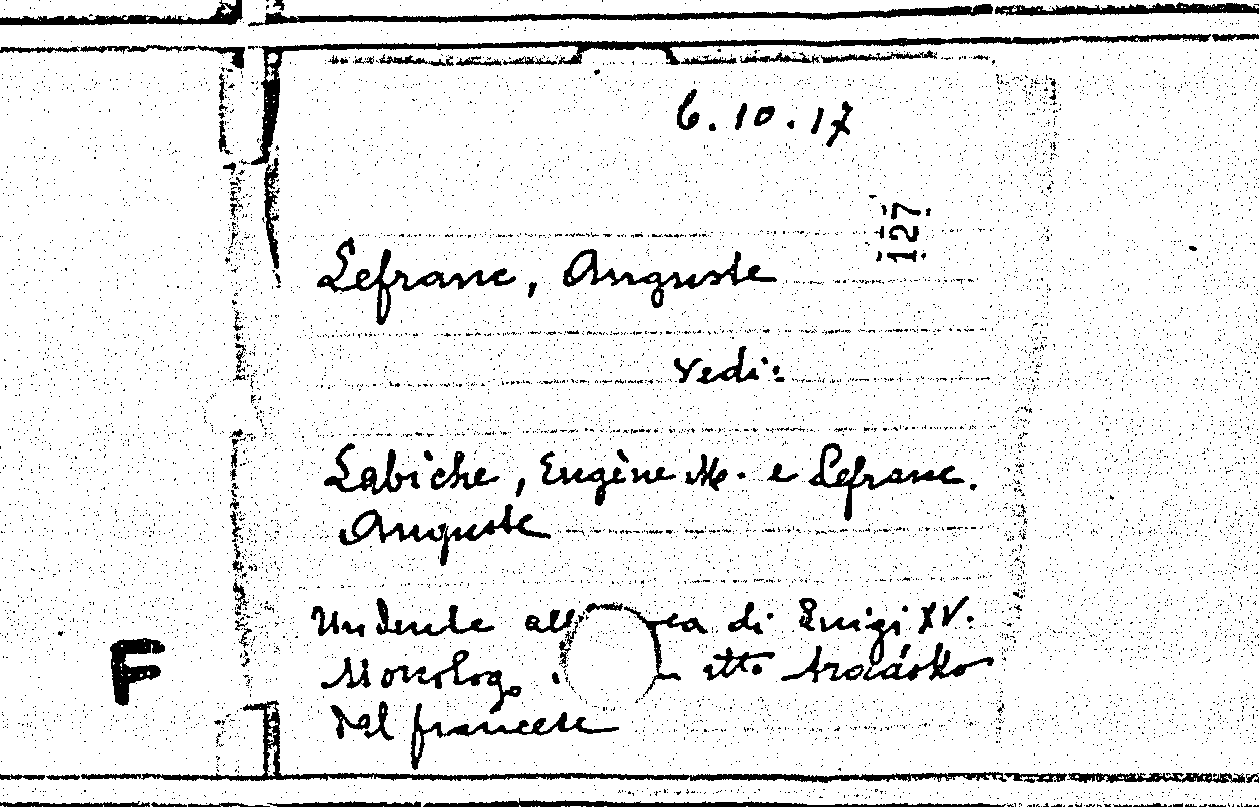 6.10.17
127
Lefranc, Auguste
Vedi:
Labiche, Eugène M. e Lefranc.
Auguste
Un dente all ca di Luigi XV.
Monologo atto tradotto
del francese
F